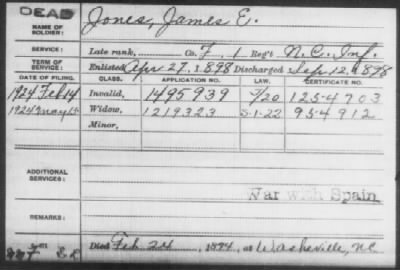 DEAD
NAME OF SOLDIER: Jones, James E.
SERVICE: Late rank, Co. F, 1 Reg't N.C. Inf.
TERM OF SERVICE: Enlisted Apr 27, 1898 Discharged Sep 12, 1898
DATE OF FILING. CLASS. APPLICATION NO. LAW. CERTIFICATE NO.
1924 Feb 14 Invalid, 1495939 /20 1254703
1924 May Widow, 1219323 5-1-22 954912
Minor,
ADDITIONAL SERVICES:
War with Spain
REMARKS:
Died Feb 24, at W. Asheville, NC